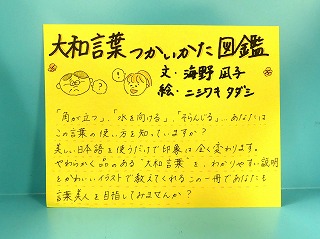 大和言葉つかいかた図鑑
文・海野 凪子
絵・ニシワキ タダシ
?
!
「角が立つ」、「水を向ける」、「そらんじる」…あなたは
この言葉の使い方を知っていますか?
美しい日本語を使うだけで印象は全く変わります。
やわらかく品のある"大和言葉"を、わかりやすい説明
とかわいいイラストで教えてくれるこの一冊であなたも
言葉美人を目指してみませんか?